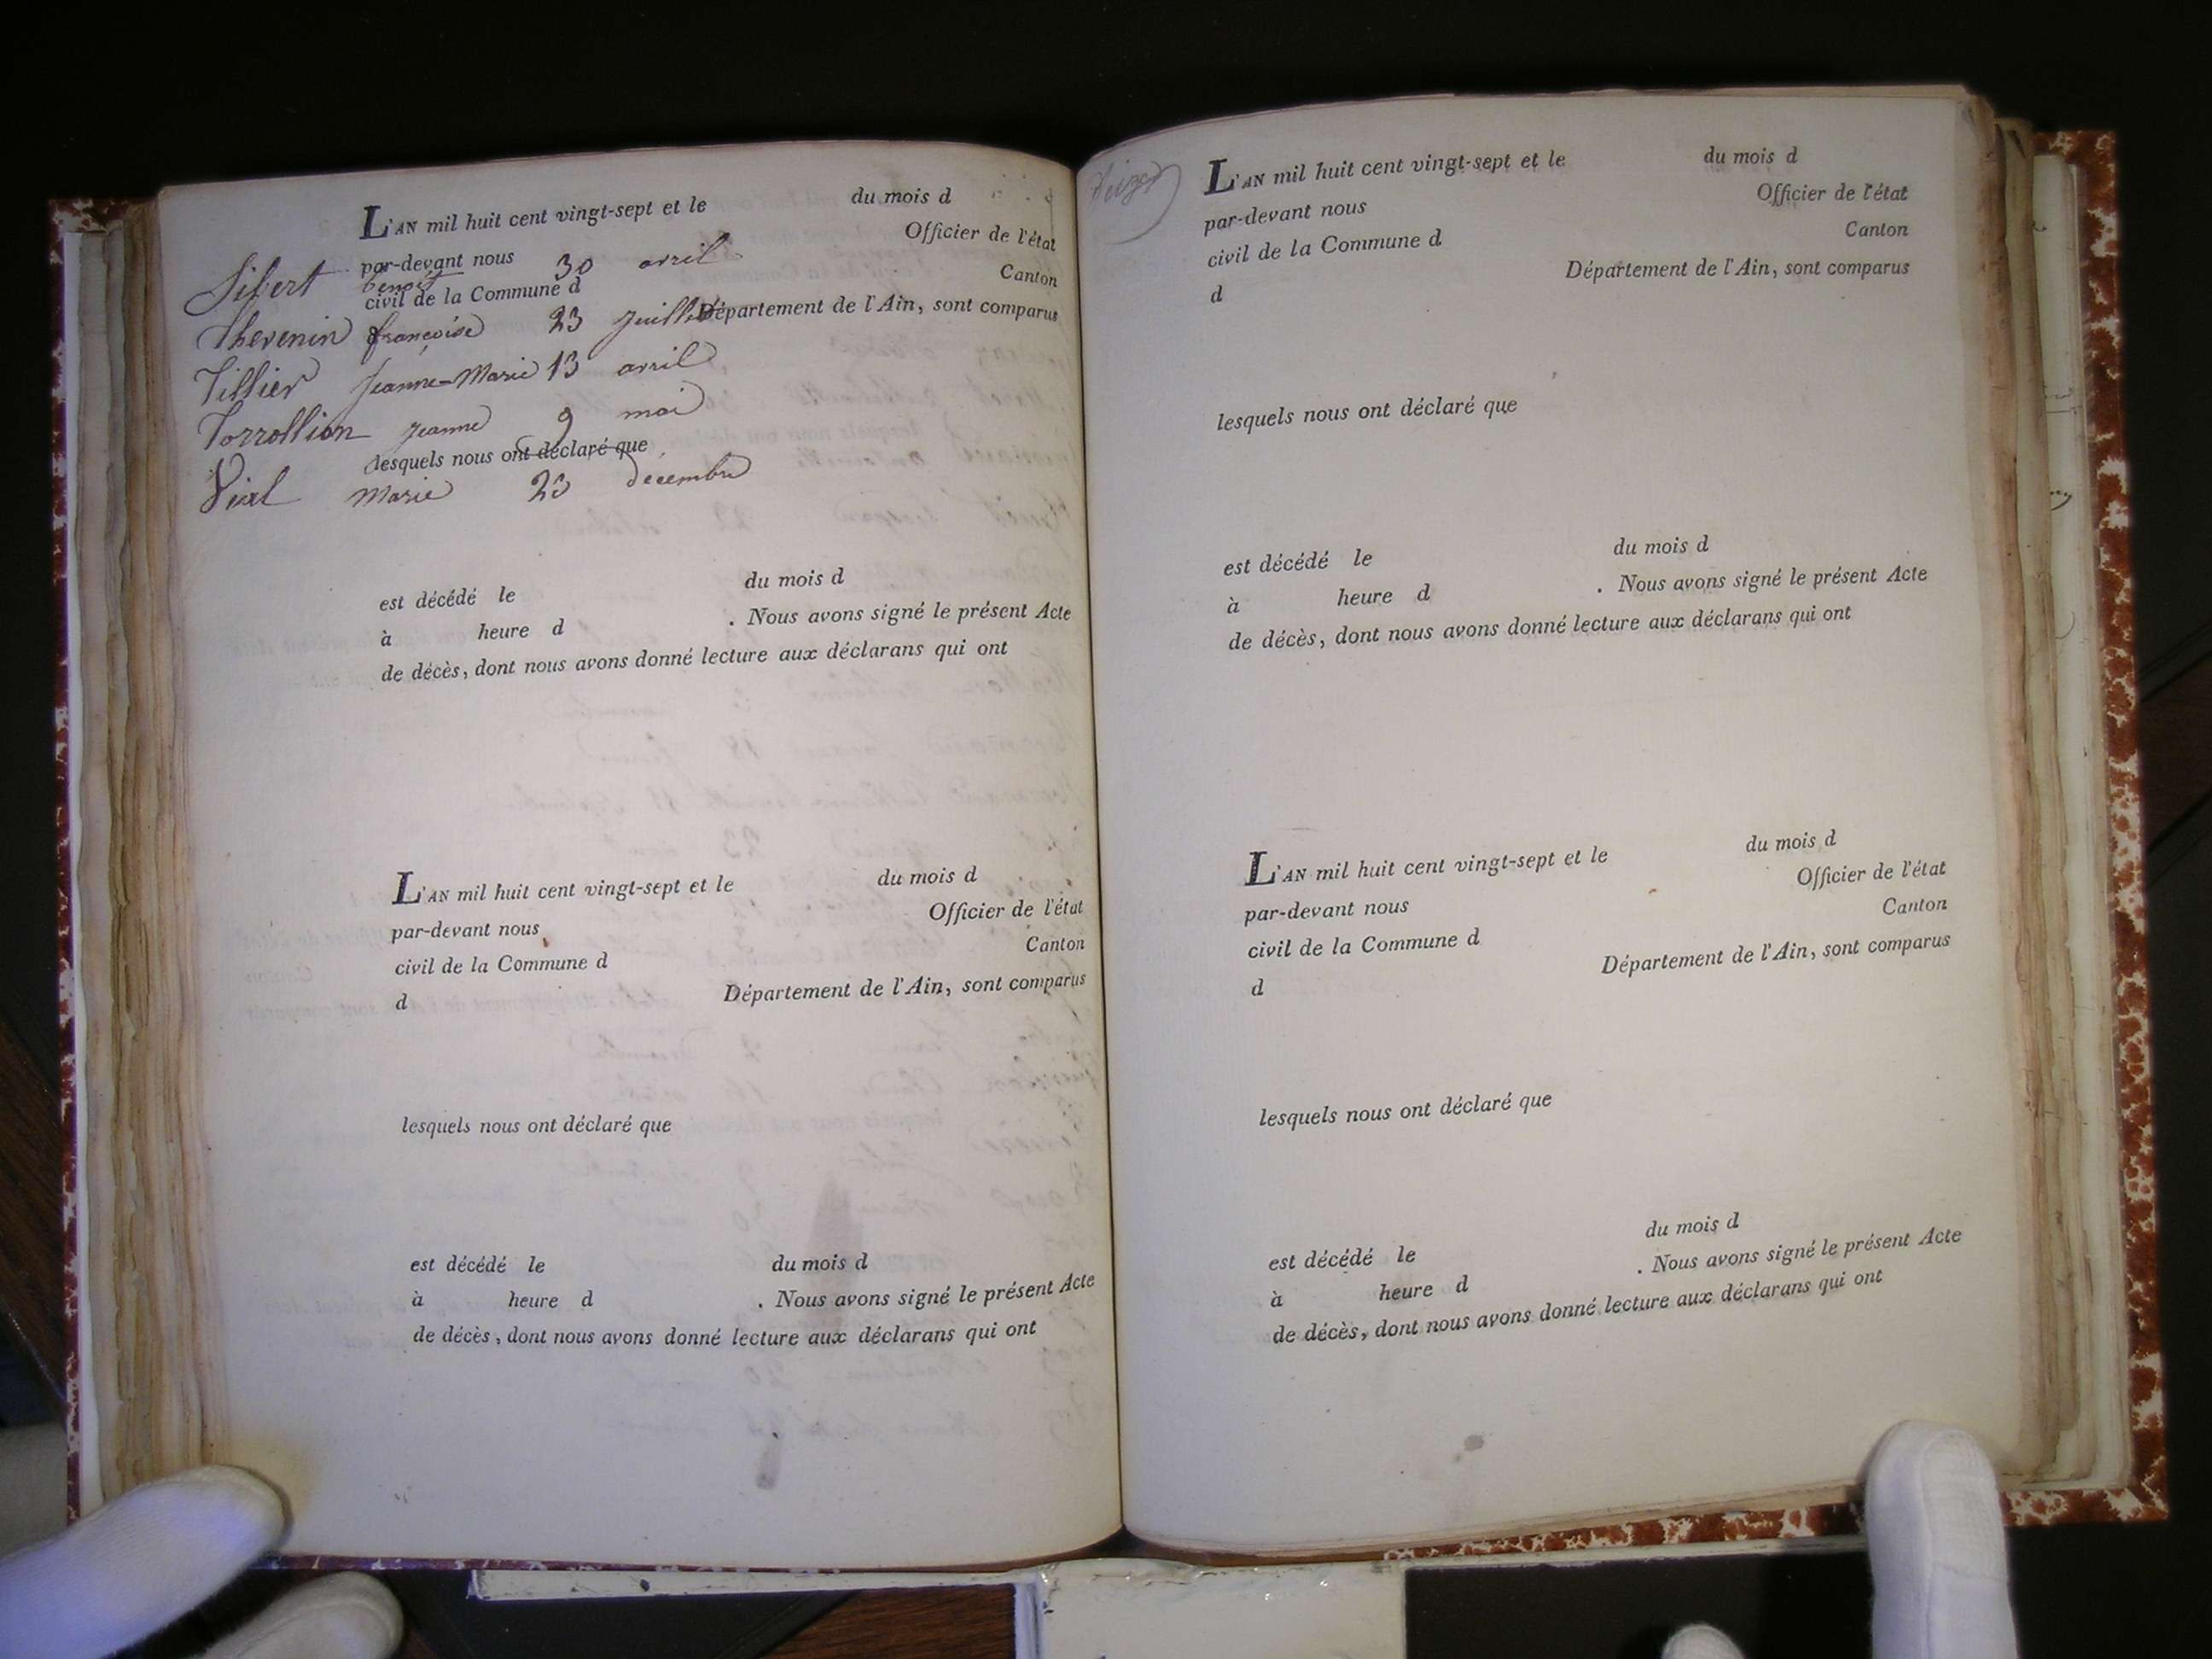 L'AN mil huit cent vingt-sept et le du mois d
par-devant nous Officier de l'état
Sibert benoit 30 avril
civil de la Commune d Canton
Thevenin françoise 23 juillet
Département de l'Ain, sont comparus
Tillier jeanne-Marie 13 avril
Torrollion jeanne 9 mai
lesquels nous ont déclaré que
Vial Marie 23 décembre
est décédé le du mois d
à heure d . Nous avons signé le présent Acte
de décès, dont nous avons donné lecture aux déclarans qui ont
L'AN mil huit cent vingt-sept et le du mois d
par-devant nous Officier de l'état
civil de la Commune d Canton
d Département de l'Ain, sont comparus
lesquels nous ont déclaré que
est décédé le du mois d
à heure d . Nous avons signé le présent Acte
de décès, dont nous avons donné lecture aux déclarans qui ont
L'AN mil huit cent vingt-sept et le du mois d
par-devant nous Officier de l'état
civil de la Commune d Canton
d Département de l'Ain, sont comparus
lesquels nous ont déclaré que
est décédé le du mois d
à heure d . Nous avons signé le présent Acte
de décès, dont nous avons donné lecture aux déclarans qui ont
L'AN mil huit cent vingt-sept et le du mois d
par-devant nous Officier de l'état
civil de la Commune d Canton
d Département de l'Ain, sont comparus
lesquels nous ont déclaré que
est décédé le du mois d
à heure d . Nous avons signé le présent Acte
de décès, dont nous avons donné lecture aux déclarans qui ont